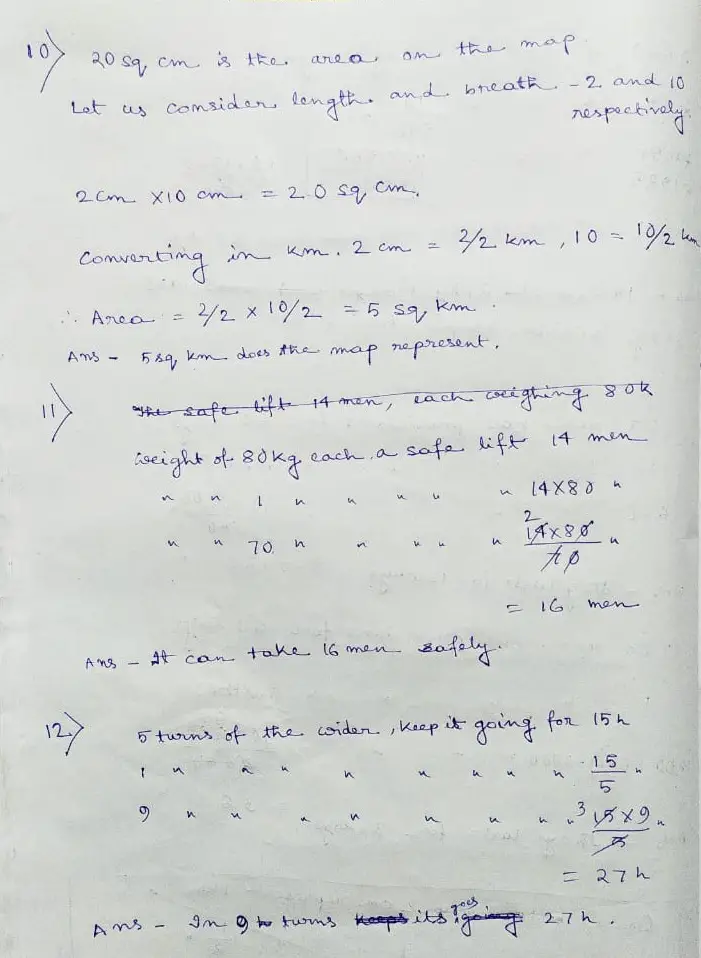 10) 20 sq cm is the area on the map
Let us consider length and breath - 2 and 10
respectively.
2 cm x 10 cm = 20 sq cm.
Converting in km. 2 cm = 2/2 km, 10 = 10/2 km
∴ Area = 2/2 x 10/2 = 5 sq km.
Ans - 5 sq km does the map represent.
11) The safe lift 14 men, each weighing 80k
weight of 80kg each a safe lift 14 men
" " 1 " " " " " 14x80 "
" " 70 " " " " " 2 14x80/70 "
= 16 men
Ans - It can take 16 men safely.
12) 5 turns of the wider, keep it going for 15h
1 " " " " " " " " 15/5 "
9 " " " " " " " 3 15x9/5 "
= 27h
Ans - In 9 turns keeps its goes going 27h.